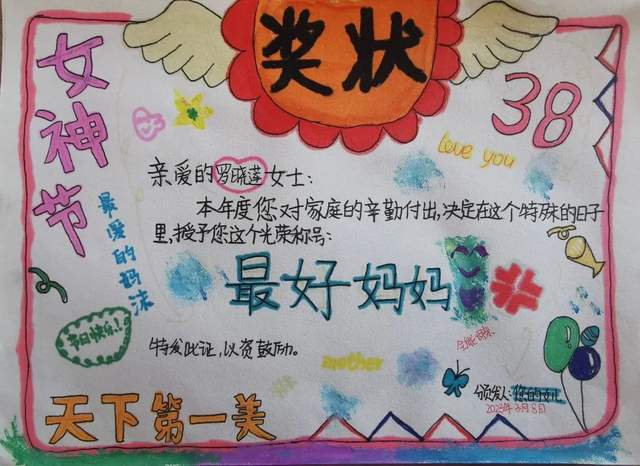 奖状
女神节
38
love you
亲爱的罗晓莲女士:
本年度您对家庭的辛勤付出,决定在这个特殊的日子
里,授予您这个光荣称号:
最爱的妈沫
最好妈妈
节日快乐!
特发此证,以资鼓励。
mother
颁发人:您的女儿
2023年3月8日
天下第一美